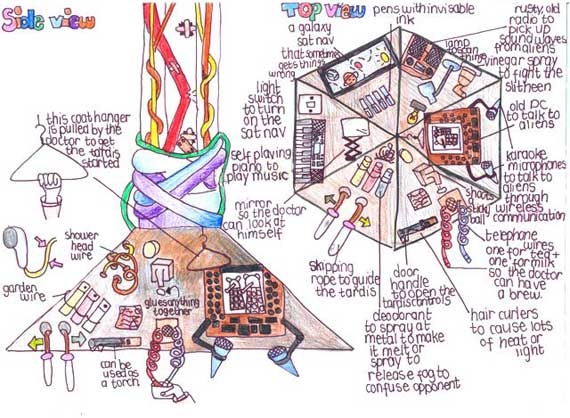 Side view
Top view
pens with invisable
ink
a galaxy
sat nav
that sometimes
gets things
wrong
lamp
to scan
things
rusty, old
radio to
pick up
sound waves
from aliens
vinegar spray
to fight the
slitheen
light
switch
to turn
on the
sat nav
old PC
to talk to
aliens
this coat hanger
is pulled by the
doctor to get
the tardis
started
self playing
piano to
play music
karaoke
microphones
to talk to
aliens
through
wireless
communication
shoots
a
sticky
ball
mirror
so the doctor
can look at
himself
shower
head
wire
telephone
wires
one for tea +
one for milk
so the doctor
can have
a brew.
skipping
rope to guide
the tardis
door
handle
to open the
tardis controls
garden
wire
glues anything
together
deodorant
to spray at
metal to make
it melt or
spray to
release fog to
confuse opponent
hair curlers
to cause lots
of heat or
light
can be
used as
a torch